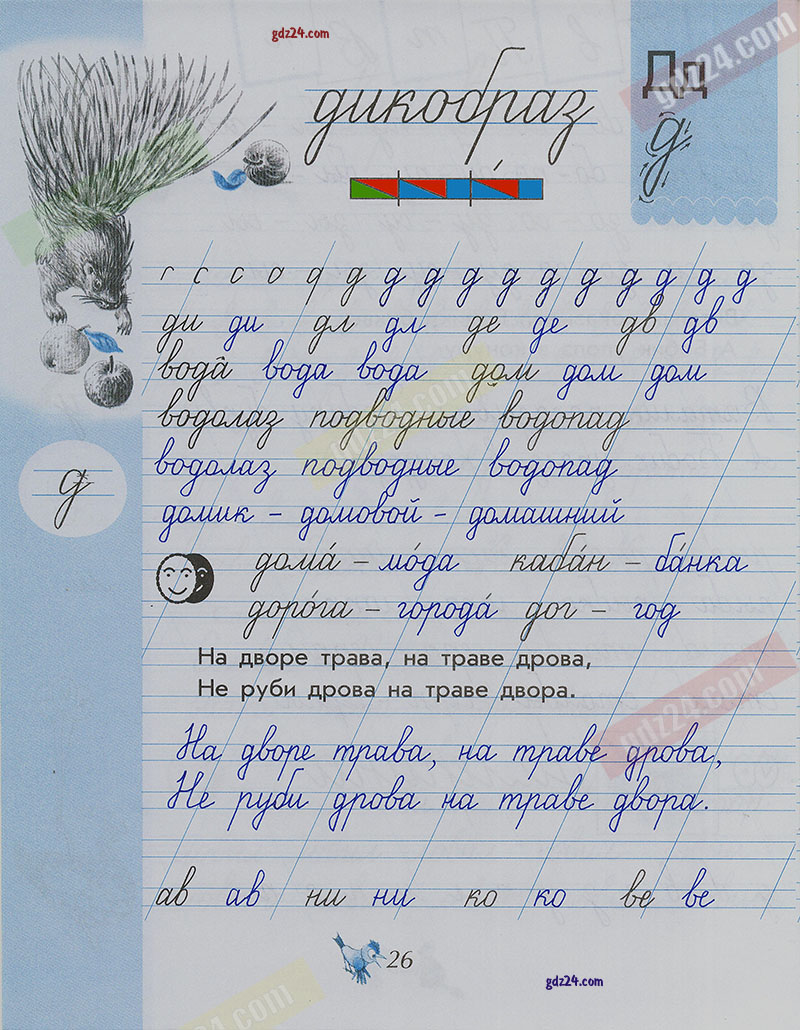 gdz24.com
gdz24.com
Дд
дикобраз
д
г с с а д д д д д д д д д д д д
ди ди дл дл де де дв дв
вода вода вода дом дом дом
водолаз подводные водопад
д
водолаз подводные водопад
домик – домовой – домашний
дома́ – мо́да каба́н – ба́нка
доро́га – города́ дог – год
На дворе трава, на траве дрова,
Не руби дрова на траве двора.
gdz24.com
На дворе трава, на траве дрова,
Не руби дрова на траве двора.
ав ав ни ни ко ко ве ве
26
gdz24.com